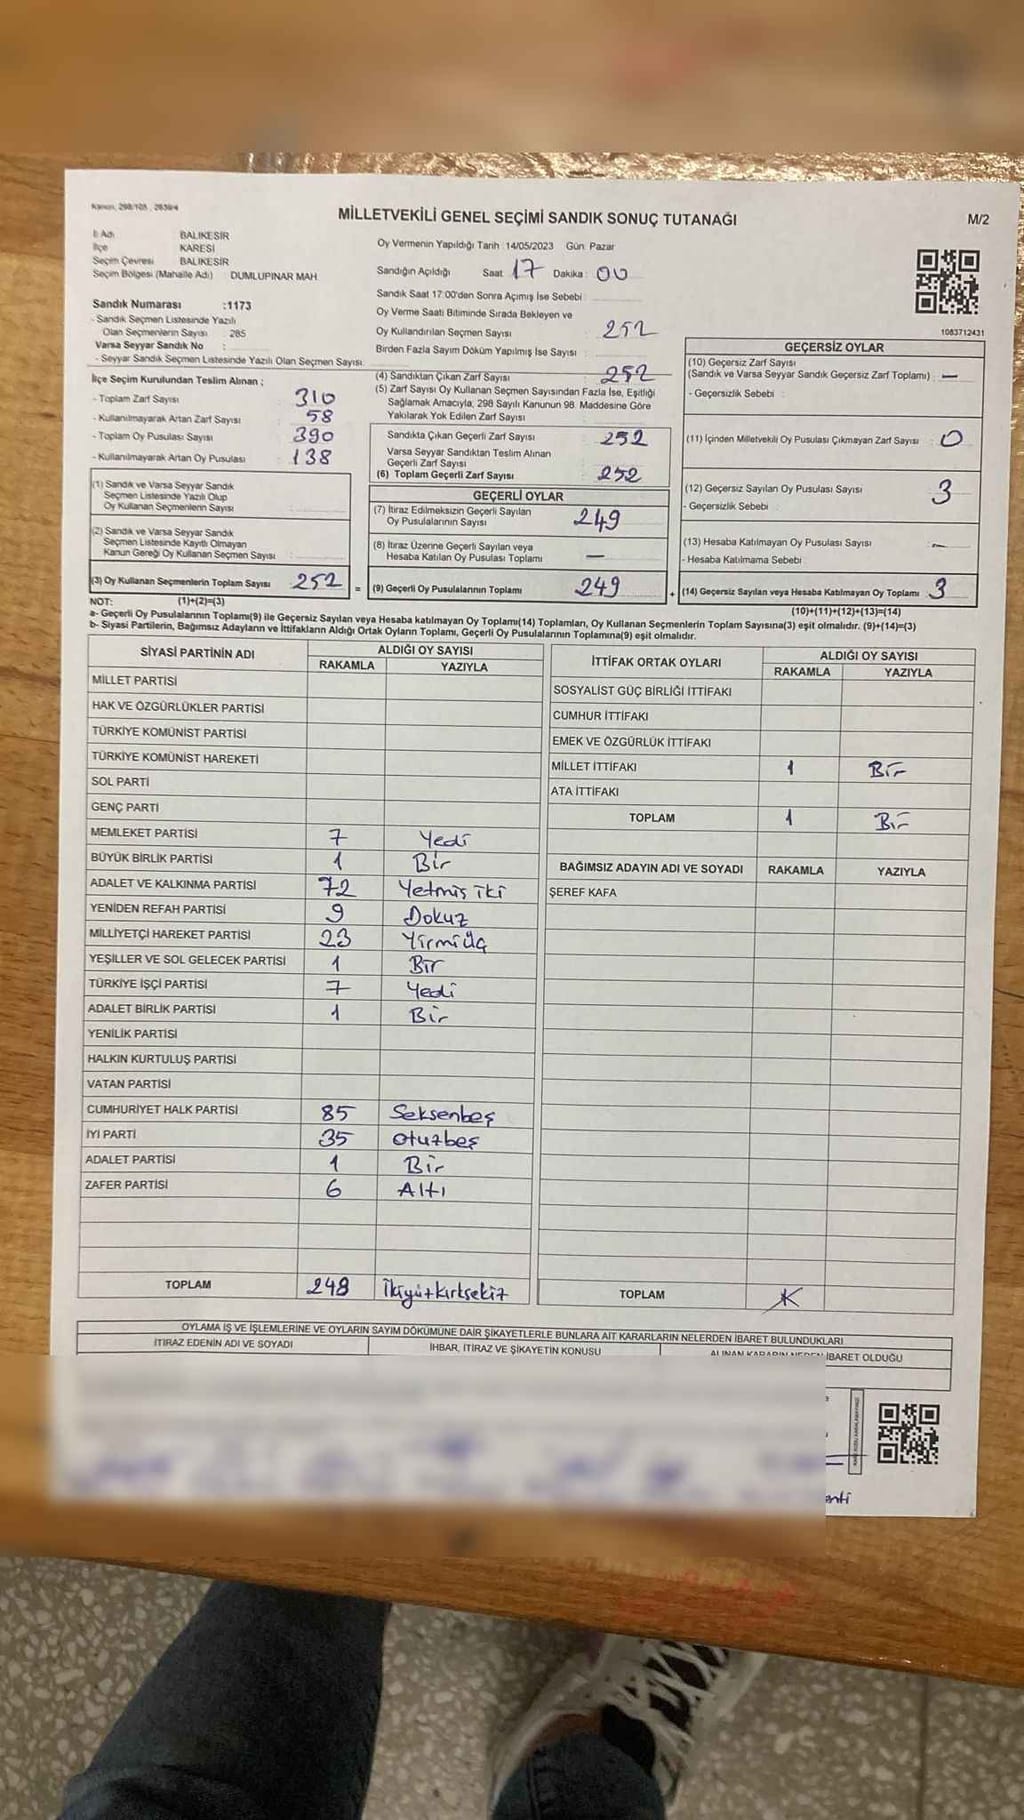 MİLLETVEKİLİ GENEL SEÇİMİ SANDIK SONUÇ TUTANAĞI
M/2
İl Adı BALIKESİR
İlçe KARESİ
Seçim Çevresi BALIKESİR
Seçim Bölgesi (Mahalle Adı) DUMLUPINAR MAH.
Sandık Numarası :1173
- Sandık Seçmen Listesinde Yazılı
Olan Seçmenlerin Sayısı : 285
Varsa Seyyar Sandık No :
- Seyyar Sandık Seçmen Listesinde Yazılı Olan Seçmen Sayısı:
Oy Vermenin Yapıldığı Tarih :14/05/2023 Gün: Pazar
Sandığın Açıldığı Saat 17 Dakika: 00
Sandık Saat 17:00'den Sonra Açımış İse Sebebi :
Oy Verme Saati Bitiminde Sırada Bekleyen ve
Oy Kullandırılan Seçmen Sayısı 252
Birden Fazla Sayım Döküm Yapılmış İse Sayısı :
1083712431
İlçe Seçim Kurulundan Teslim Alınan ;
- Toplam Zarf Sayısı 310
- Kullanılmayarak Artan Zarf Sayısı 58
- Toplam Oy Pusulası Sayısı 390
- Kullanılmayarak Artan Oy Pusulası 138
(1) Sandık ve Varsa Seyyar Sandık
Seçmen Listesinde Yazılı Olup
Oy Kullanan Seçmenlerin Sayısı
(2) Sandık ve Varsa Seyyar Sandık
Seçmen Listesinde Kayıtlı Olmayan
Kanun Gereği Oy Kullanan Seçmen Sayısı
(3) Oy Kullanan Seçmenlerin Toplam Sayısı 252 =
(4) Sandıktan Çıkan Zarf Sayısı 252
(5) Zarf Sayısı Oy Kullanan Seçmen Sayısından Fazla İse, Eşitliği
Sağlamak Amacıyla, 298 Sayılı Kanunun 98. Maddesine Göre
Yakılarak Yok Edilen Zarf Sayısı
Sandıkta Çıkan Geçerli Zarf Sayısı 252
Varsa Seyyar Sandıktan Teslim Alınan
Geçerli Zarf Sayısı
(6) Toplam Geçerli Zarf Sayısı 252
GEÇERLİ OYLAR
(7) İtiraz Edilmeksizin Geçerli Sayılan
Oy Pusulalarının Sayısı 249
(8) İtiraz Üzerine Geçerli Sayılan veya
Hesaba Katılan Oy Pusulası Toplamı —
(9) Geçerli Oy Pusulalarının Toplamı 249 +
GEÇERSİZ OYLAR
(10) Geçersiz Zarf Sayısı
(Sandık ve Varsa Seyyar Sandık Geçersiz Zarf Toplamı) : —
- Geçersizlik Sebebi :
(11) İçinden Milletvekili Oy Pusulası Çıkmayan Zarf Sayısı : 0
(12) Geçersiz Sayılan Oy Pusulası Sayısı : 3
- Geçersizlik Sebebi :
(13) Hesaba Katılmayan Oy Pusulası Sayısı : —
- Hesaba Katılmama Sebebi :
(14) Geçersiz Sayılan veya Hesaba Katılmayan Oy Toplamı 3
NOT: (1)+(2)=(3)
(10)+(11)+(12)+(13)=(14)
a- Geçerli Oy Pusulalarının Toplamı(9) ile Geçersiz Sayılan veya Hesaba katılmayan Oy Toplamı(14) Toplamları, Oy Kullanan Seçmenlerin Toplam Sayısına(3) eşit olmalıdır. (9)+(14)=(3)
b- Siyasi Partilerin, Bağımsız Adayların ve İttifakların Aldığı Ortak Oyların Toplamı, Geçerli Oy Pusulalarının Toplamına(9) eşit olmalıdır.
SİYASİ PARTİNİN ADI ALDIĞI OY SAYISI
RAKAMLA YAZIYLA
MİLLET PARTİSİ
HAK VE ÖZGÜRLÜKLER PARTİSİ
TÜRKİYE KOMÜNİST PARTİSİ
TÜRKİYE KOMÜNİST HAREKETİ
SOL PARTİ
GENÇ PARTİ
MEMLEKET PARTİSİ 7 Yedi
BÜYÜK BİRLİK PARTİSİ 1 Bir
ADALET VE KALKINMA PARTİSİ 72 Yetmiş iki
YENİDEN REFAH PARTİSİ 9 Dokuz
MİLLİYETÇİ HAREKET PARTİSİ 23 YirmiÜç
YEŞİLLER VE SOL GELECEK PARTİSİ 1 Bir
TÜRKİYE İŞÇİ PARTİSİ 7 Yedi
ADALET BİRLİK PARTİSİ 1 Bir
YENİLİK PARTİSİ
HALKIN KURTULUŞ PARTİSİ
VATAN PARTİSİ
CUMHURİYET HALK PARTİSİ 85 Seksenbeş
İYİ PARTİ 35 otuzbeş
ADALET PARTİSİ 1 Bir
ZAFER PARTİSİ 6 Altı
TOPLAM 248 İkiyüzkırksekiz
İTTİFAK ORTAK OYLARI ALDIĞI OY SAYISI
RAKAMLA YAZIYLA
SOSYALİST GÜÇ BİRLİĞİ İTTİFAKI
CUMHUR İTTİFAKI
EMEK VE ÖZGÜRLÜK İTTİFAKI
MİLLET İTTİFAKI 1 Bir
ATA İTTİFAKI
TOPLAM 1 Bir
BAĞIMSIZ ADAYIN ADI VE SOYADI RAKAMLA YAZIYLA
ŞEREF KAFA
TOPLAM
OYLAMA İŞ VE İŞLEMLERİNE VE OYLARIN SAYIM DÖKÜMÜNE DAİR ŞİKAYETLERLE BUNLARA AİT KARARLARIN NELERDEN İBARET BULUNDUKLARI
İTİRAZ EDENİN ADI VE SOYADI İHBAR, İTİRAZ VE ŞİKAYETİN KONUSU ALINAN KARARIN NEDEN İBARET OLDUĞU